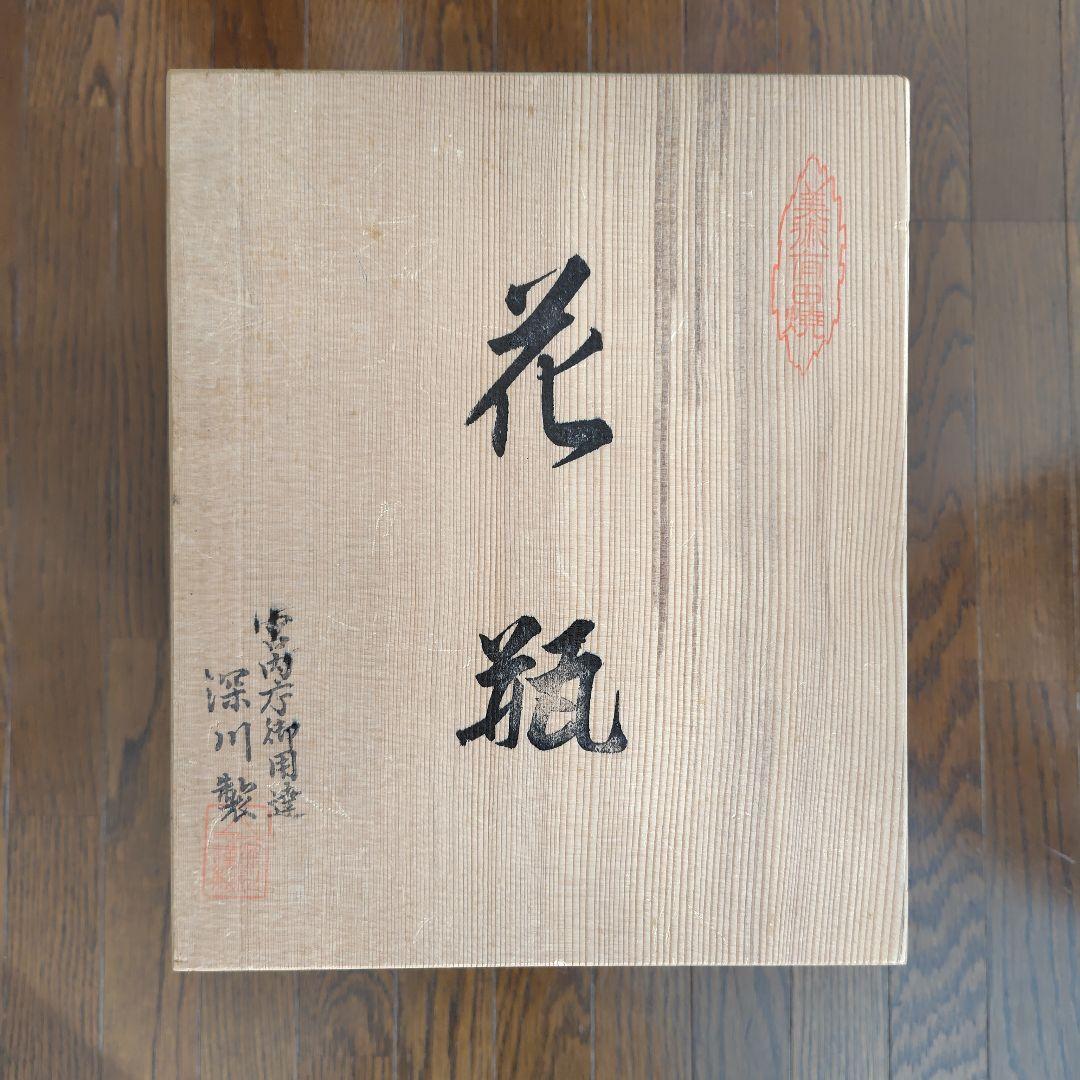 美術有田焼
花瓶
宮内庁御用達
深川製